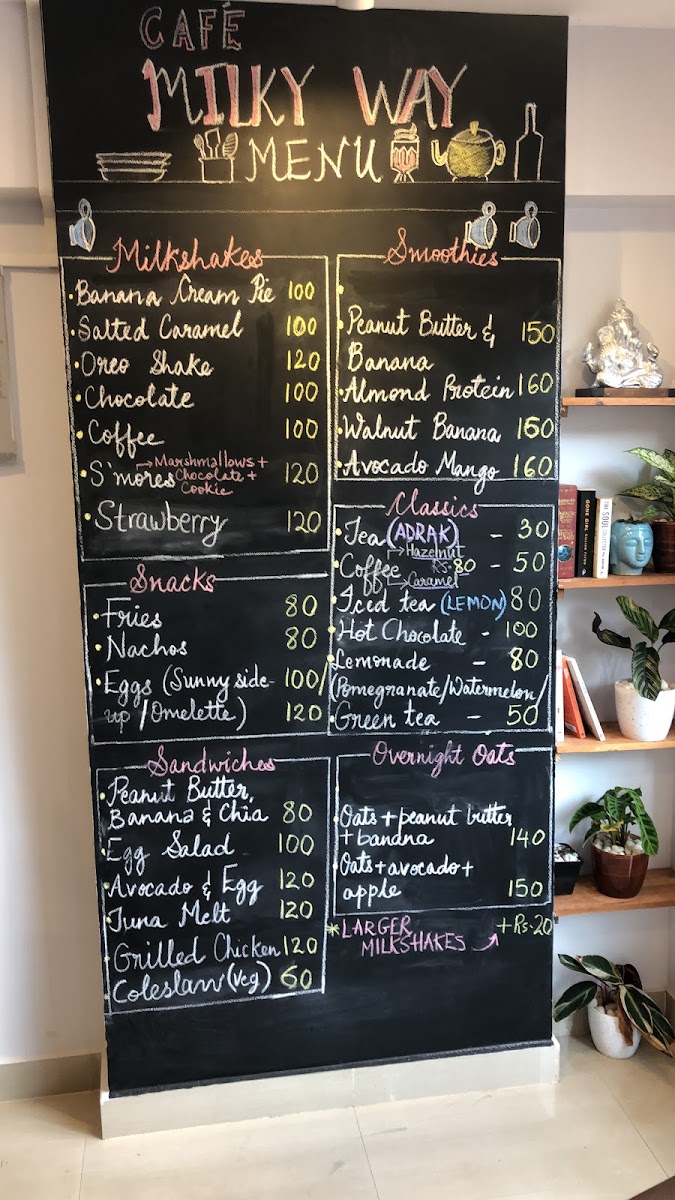 CAFÉ
MILKY WAY
MENU
Milkshakes
Banana Cream Pie 100
Salted Caramel 100
Oreo Shake 120
Chocolate 100
Coffee 100
S'mores → Marshmallows + Chocolate + Cookie 120
Strawberry 120
Snacks
Fries 80
Nachos 80
Eggs (Sunny side- 100/
up / Omelette) 120
Sandwiches
Peanut Butter,
Banana & Chia 80
Egg Salad 100
Avocado & Egg 120
Tuna Melt 120
Grilled Chicken 120
Coleslaw (Veg) 60
Smoothies
Peanut Butter & 150
Banana
Almond Protein 160
Walnut Banana 150
Avocado Mango 160
Classics
Tea (ADRAK) - 30
→ Hazelnut
Coffee Rs. 80 - 50
→ Caramel
Iced tea (LEMON) 80
Hot Chocolate - 100
Lemonade - 80
(Pomegranate/Watermelon/
Green tea - 50
Overnight Oats
Oats + peanut butter
+ banana 140
Oats + avocado +
apple 150
*LARGER
MILKSHAKES → + Rs. 20
GONE GIRL
THE SOUL